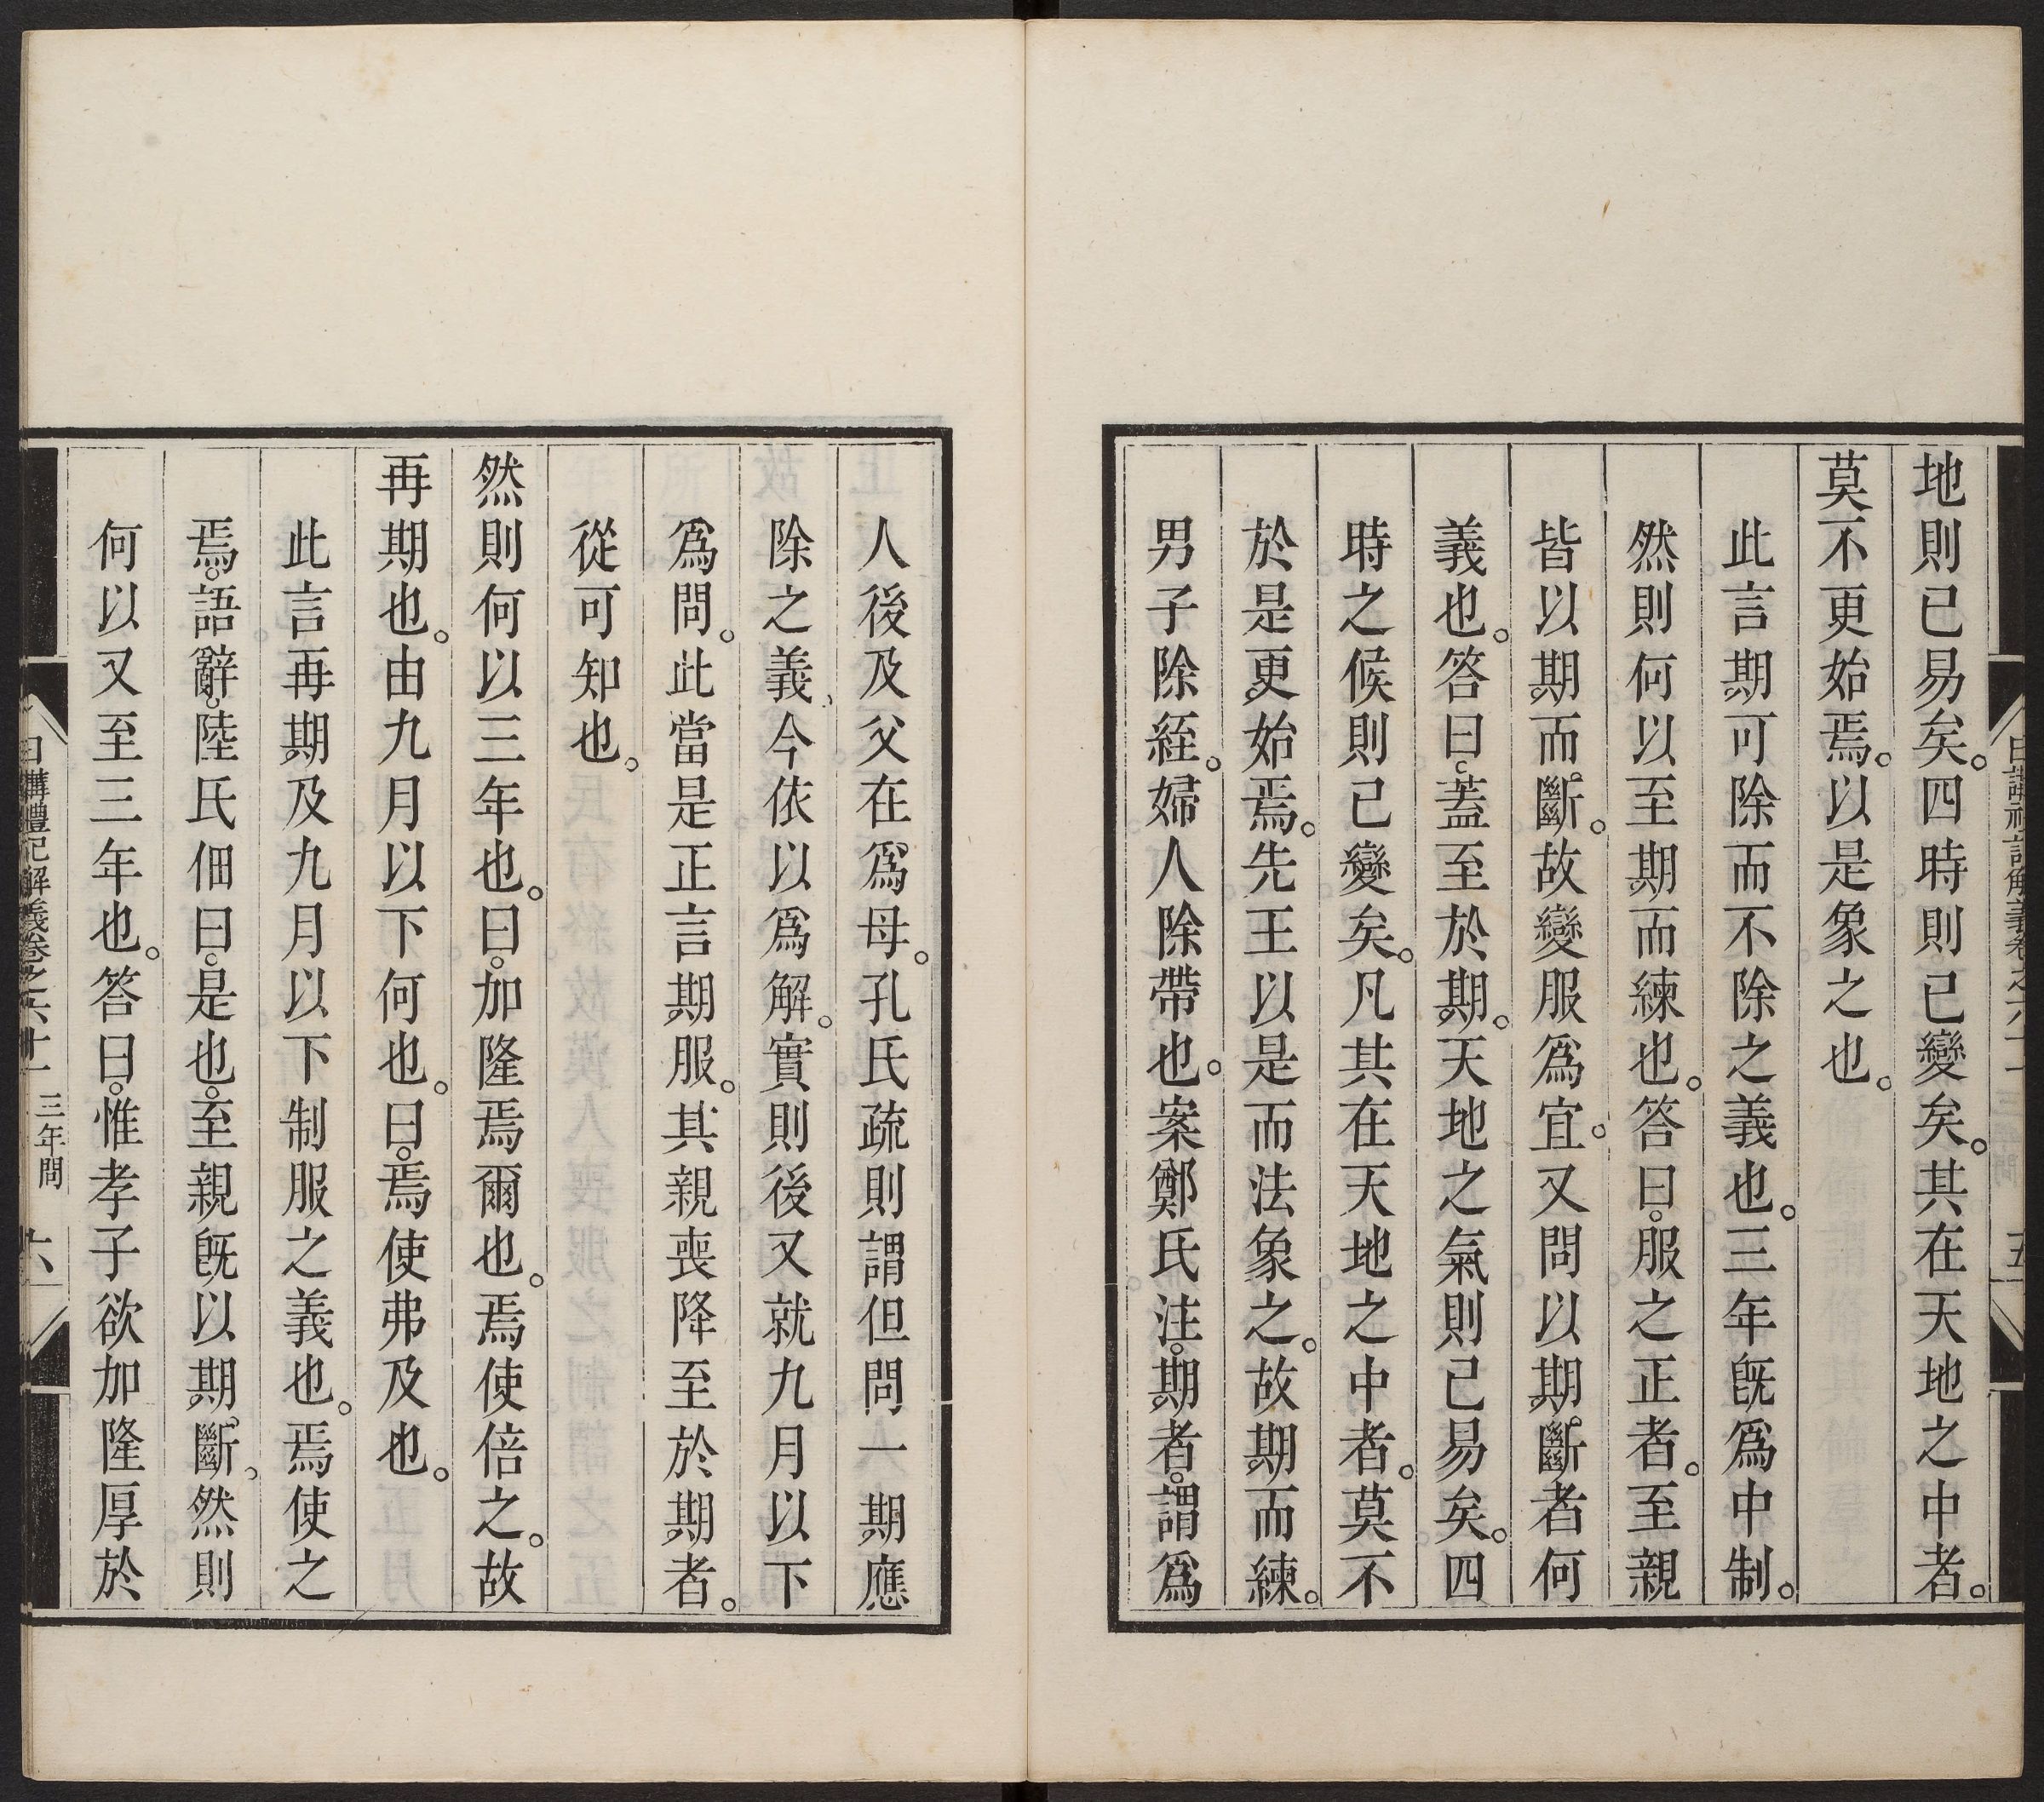 地則已易矣。四時則已變矣。其在天地之中者。
莫不更始焉。以是象之也。
此言期可除而不除之義也。三年旣爲中制。
然則何以至期而練也。答曰。服之正者。至親
皆以期而斷。故變服爲宜。又問以期斷者何
義也。答曰。蓋至於期。天地之氣則已易矣。四
時之候則已變矣。凡其在天地之中者。莫不
於是更始焉。先王以是而法象之。故期而練。
男子除絰。婦人除帶也。案鄭氏注。期者。謂爲
人後及父在爲母。孔氏疏則謂但問一期應
除之義、今依以爲解。實則後又就九月以下
爲問。此當是正言期服。其親喪降至於期者。
從可知也。
然則何以三年也。曰。加隆焉爾也。焉使倍之。故
再期也。由九月以下何也。曰。焉使弗及也。
此言再期及九月以下制服之義也。焉使之
焉。語辭。陸氏佃曰。是也。至親旣以期斷。然則
何以又至三年也。答曰。惟孝子欲加隆厚於
日講禮記解義卷之六十一 三年問 六